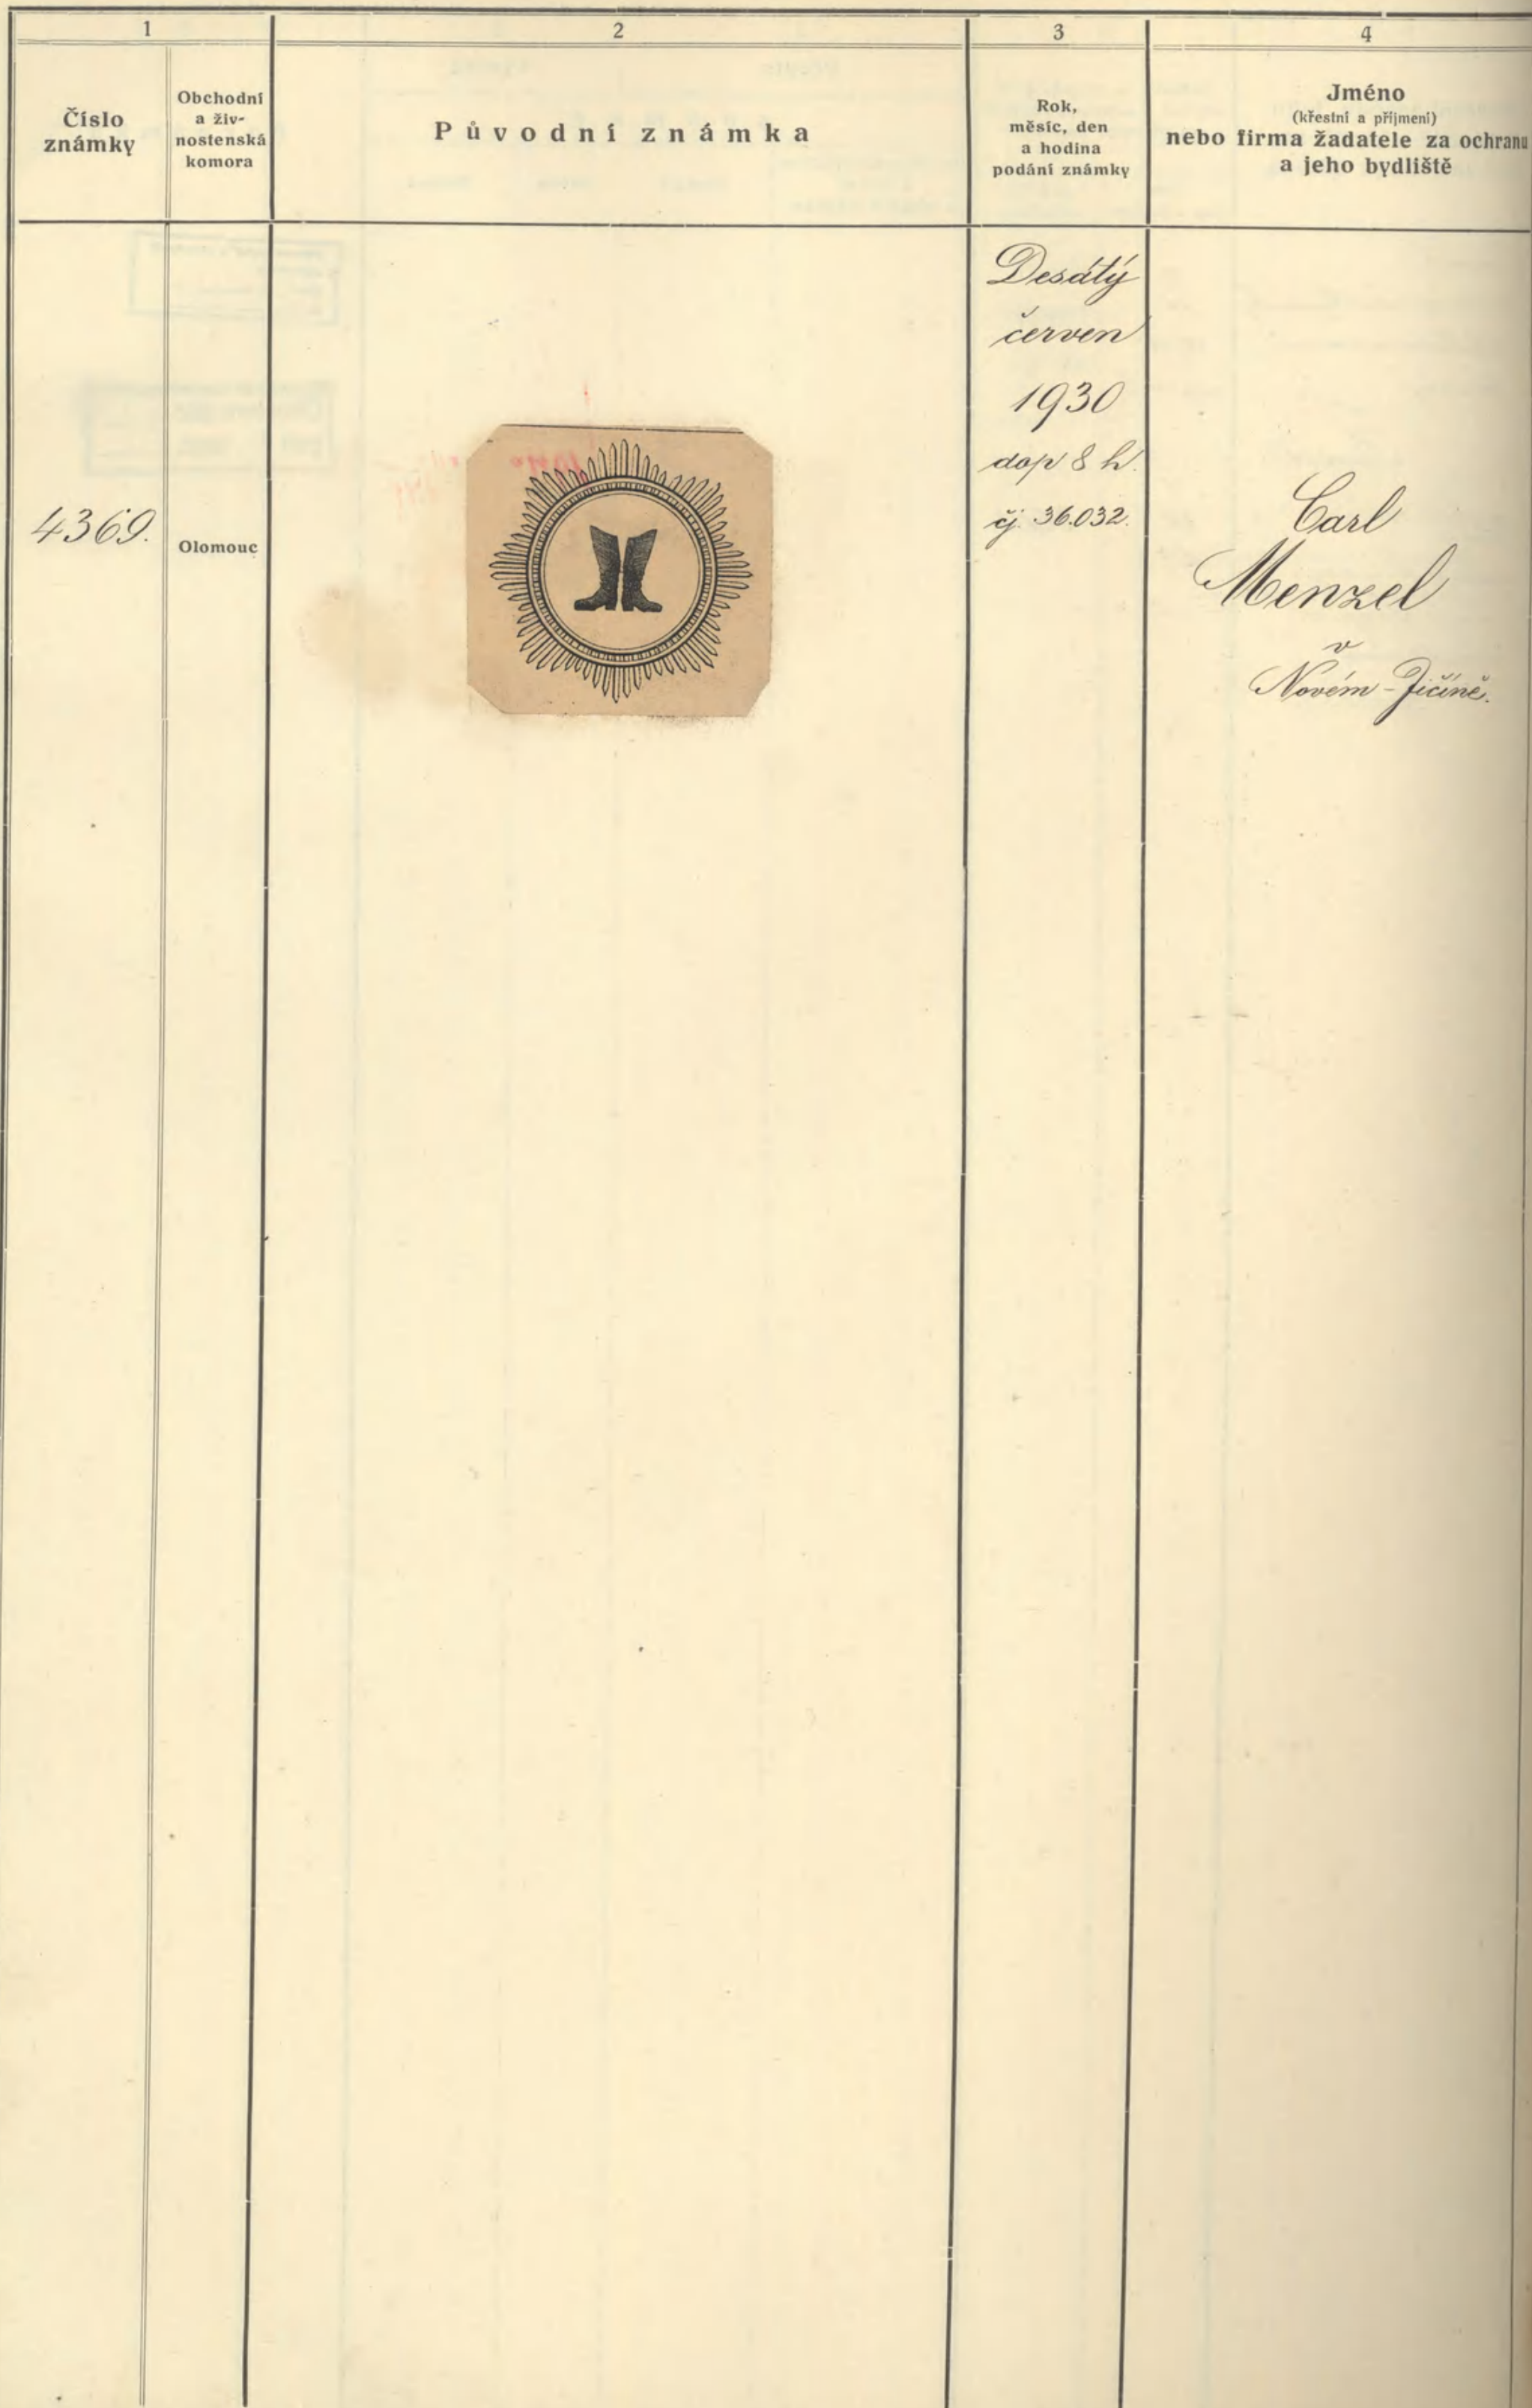 1
2
3
4
Číslo
známky
Obchodní
a živ-
nostenská
komora
Původní známka
Rok,
měsíc, den
a hodina
podání známky
Jméno
(křestní a příjmení)
nebo firma žadatele za ochranu
a jeho bydliště
4369.
Olomouc
Desátý
červen
1930
dop 8 h.
čj. 36.032.
Carl
Menzel
v
Novém-Jičíně.